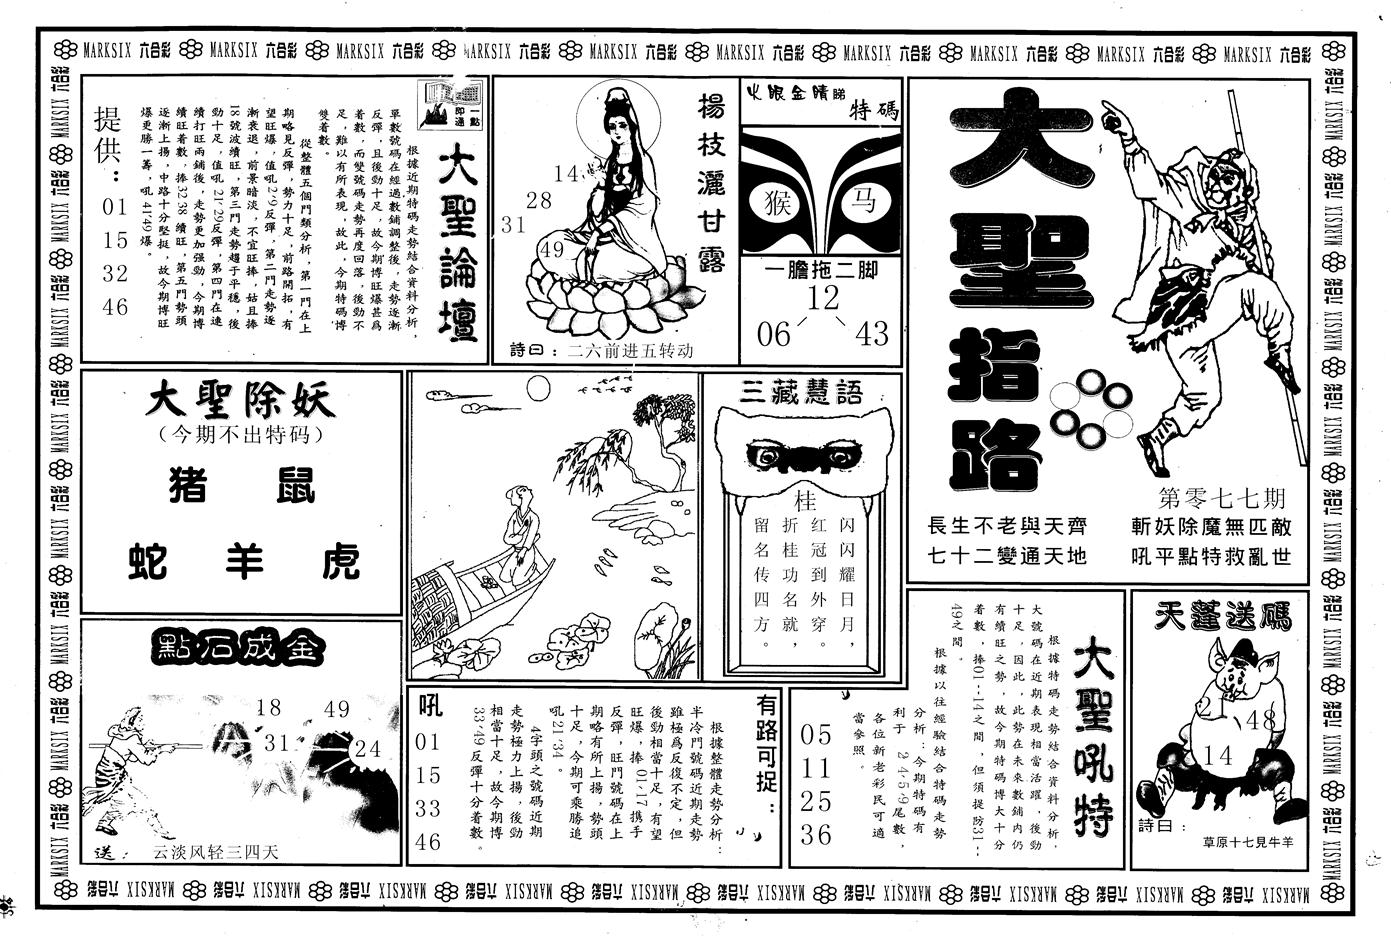 MARKSIX 六合彩 MARKSIX 六合彩 MARKSIX 六合彩 MARKSIX 六合彩 MARKSIX 六合彩 MARKSIX 六合彩 MARKSIX 六合彩 MARKSIX 六合彩 MARKSIX 六合彩 MARKSIX 六合彩
大聖指路
第零七七期
長生不老與天齊
七十二變通天地
斬妖除魔無匹敵
吼平點特救亂世
火眼金睛睇
特碼
猴
马
一膽拖二脚
12
06
43
楊枝灑甘露
14
28
31
49
詩曰：二六前进五转动
一點即通
大聖論壇
根據近期特碼走勢結合資料分析，
單數號碼在經過數鋪調整後，走勢逐漸
反彈，且後勁十足，故今期博旺爆甚爲
着數，而雙號碼走勢再度回落，後勁不
足，難以有所表現，故此，今期特碼博
雙着數。
從整體五個門類分析，第一門在上
期略見反彈，勢力十足，前路開拓，有
望旺爆，值吼2·9反彈，第二門走勢逐
漸衰退，前景暗淡，不宜旺捧，姑且捧
18號波續旺，第三門走勢趨于平穩，後
勁十足，值吼21·29反彈，第四門在連
續打旺兩鋪後，走勢更加强勁，今期博
續旺着數，捧32·38續旺，第五門勢頭
逐漸上揚，中路十分堅挺，故今期博旺
爆更勝一籌，吼41·49爆。
提供：
01
15
32
46
大聖除妖
（今期不出特码）
猪 鼠
蛇 羊 虎
三藏慧語
桂
闪闪耀日月，
红冠到外穿。
折桂功名就，
留名传四方。
點石成金
18
49
31
24
送：云淡风轻三四天
有路可捉：
根據整體走勢分析：
半冷門號碼近期走勢
雖極爲反復不定，但
後勁相當十足，有望
旺爆，捧01·17携手
反彈，旺門號碼在上
期略有所上揚，勢頭
十足，今期可乘勝追
吼21·34。
4字頭之號碼近期
走勢極力上揚，後勁
相當十足，故今期博
33·49反彈十分着數。
吼
01
15
33
46
大聖吼特
根據特碼走勢結合資料分析，
大號碼在近期表現相當活躍，後勁
十足，因此，此勢在未來數鋪内仍
有續旺之勢，故今期特碼博大十分
着數，捧01--14之間，但須提防31--
49之間。
根據以往經驗結合特碼走勢
分析：今期特碼有
利于2·4·5·9尾數，
各位新老彩民可適
當參照。
05
11
25
36
天蓬送碼
2
48
14
詩曰：
草原十七見牛羊